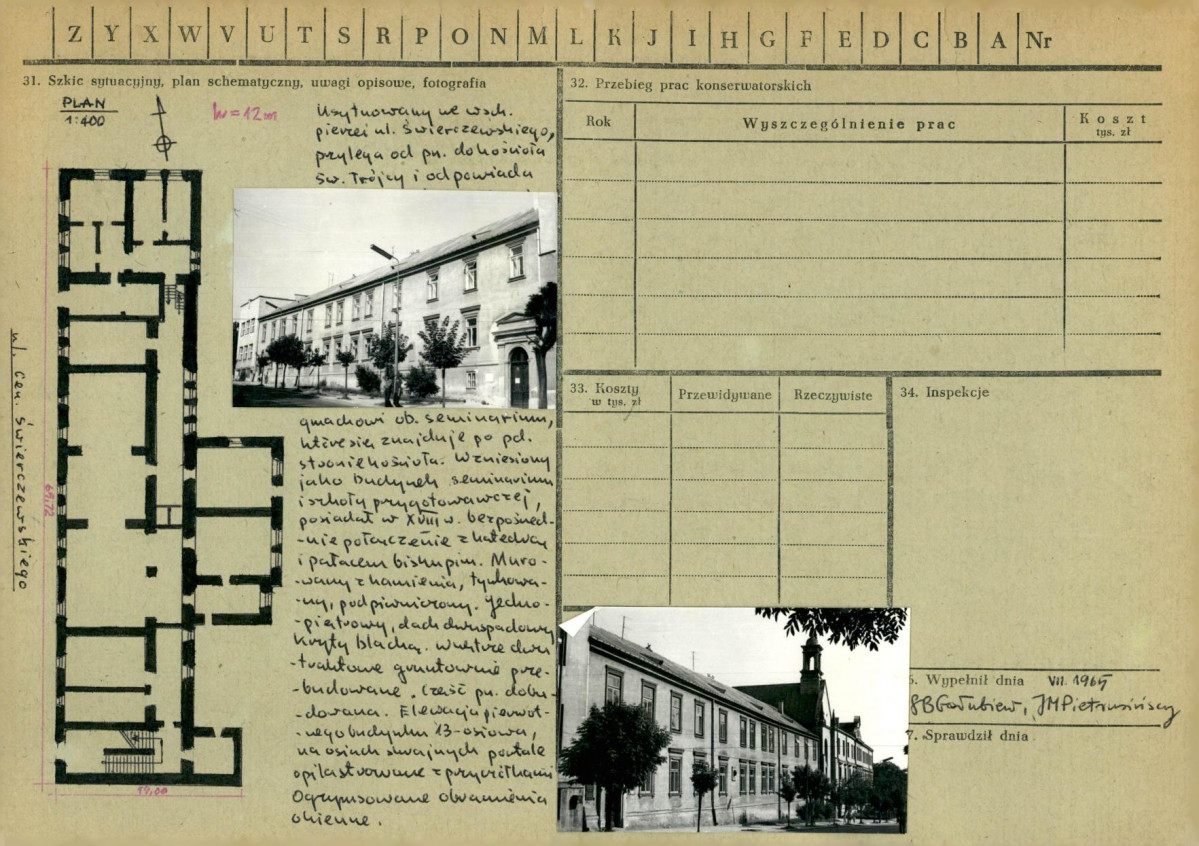 Z Y X W V U T S R P O N M L K J I H G F E D C B A Nr
31. Szkic sytuacyjny, plan schematyczny, uwagi opisowe, fotografia
PLAN
1:400
h = 12 m
Usytuowany we wsch.
pierzei ul. Świerczewskiego,
przylega od pn. do kościoła
św. Trójcy i odpowiada
gmachowi ob. seminarium,
które się znajduje po pd.
stronie kościoła. Wzniesiony
jako budynek seminarium
i szkoły przygotowawczej,
posiadał w XVIII w. bezpośred-
-nie połączenie z katedrą
i pałacem biskupim. Muro-
-wany z kamienia, tynkowa-
-ny, podpiwniczony. Jedno-
-piętrowy, dach dwuspadowy
kryty blachą. Wnętrze dwu
-traktowe gruntownie prze-
-budowane. Część pn. dobu-
-dowana. Elewacja pierwot-
-nego budynku 13-osiowa,
na osiach skrajnych portale
opilastrowane z przyczółkami
Ogzymsowane obramienia
okienne.
ul. Gen. Świerczewskiego
69,72
19,00
32. Przebieg prac konserwatorskich
Rok
Wyszczególnienie prac
Koszt
tys. zł
33. Koszty
w tys. zł
Przewidywane
Rzeczywiste
34. Inspekcje
6. Wypełnił dnia VII. 1965
JBGołubiew, JMPietrusińscy
7. Sprawdził dnia